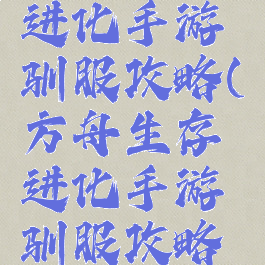 进化手游
驯服攻略(
方舟生存
进化手游
驯服攻略